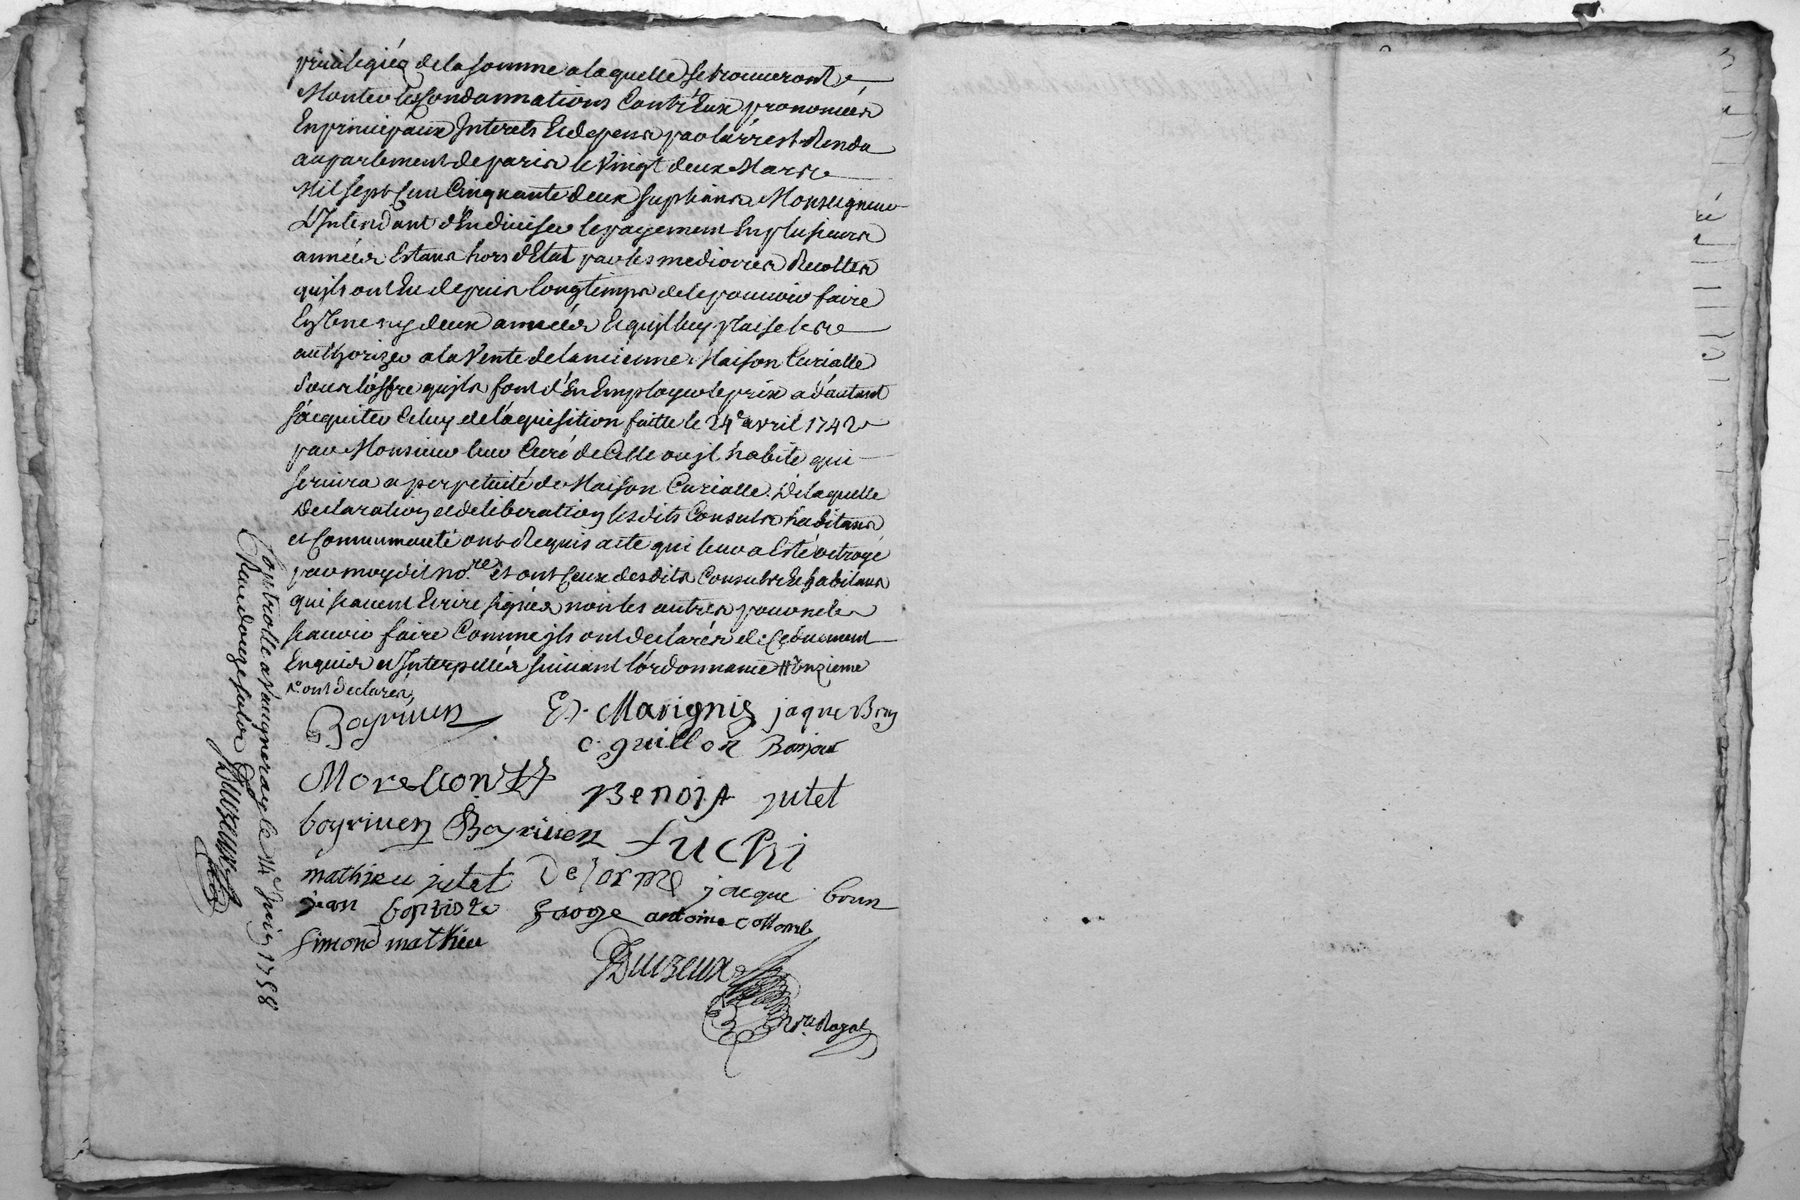 privilegiés de la somme a laquelle se trouveront
Monter les Condamnations Contr'Eux prononcées
En principaux Interets Et depens par l'arrest Rendu
au parlement de paris le Vingt deux Mars
Mil sept Cent Cinquante deux supliant Monseigneur
L'Intendant d'En diviser le payement En plusieurs
années Estans hors d'Etat par les mediocres Recoltes
quils ont Eu depuis longtemps de le pouvoir faire
En Une ny deux années Et quil luy plaise les
authorizer a la Vente de l'ancienne Maison Curialle
sous l'offre quils font d'En Employer le prix a d'autant
s'acquiter Celuy de l'aquisition faitte le 24e avril 1742
par Monsieur leur Curé de Celle ou jl habite qui
servira a perpetuité de Maison Curialle. De laquelle
Declaration et deliberation lesdits Consuls habitans
et Communauté ont Requis acte qui leur a Esté octroyé
par moydit no.re Et ont Ceux desdits Consuls Et habitans
qui scavent Ecrire signés non les autres pour ne le
scavoir faire Comme jls ont declarés de Ce duement
Enquis et Interpellés suivant l'ordonnance # onzieme
# ont declarés
Bayriven Et. Marignis jaque Brun
C. guillon Bonjour
Morellon
Benoist jutet
bayriven Bayriven fuchi
mathieu jutet Delorme jacque brun
jean baptiste farge antoine collomb
simond mathieu
Duizeux
N.re Royal
Controllé a Vaugneray le 14e Juin 1758
Reçu douze sols Duizeux